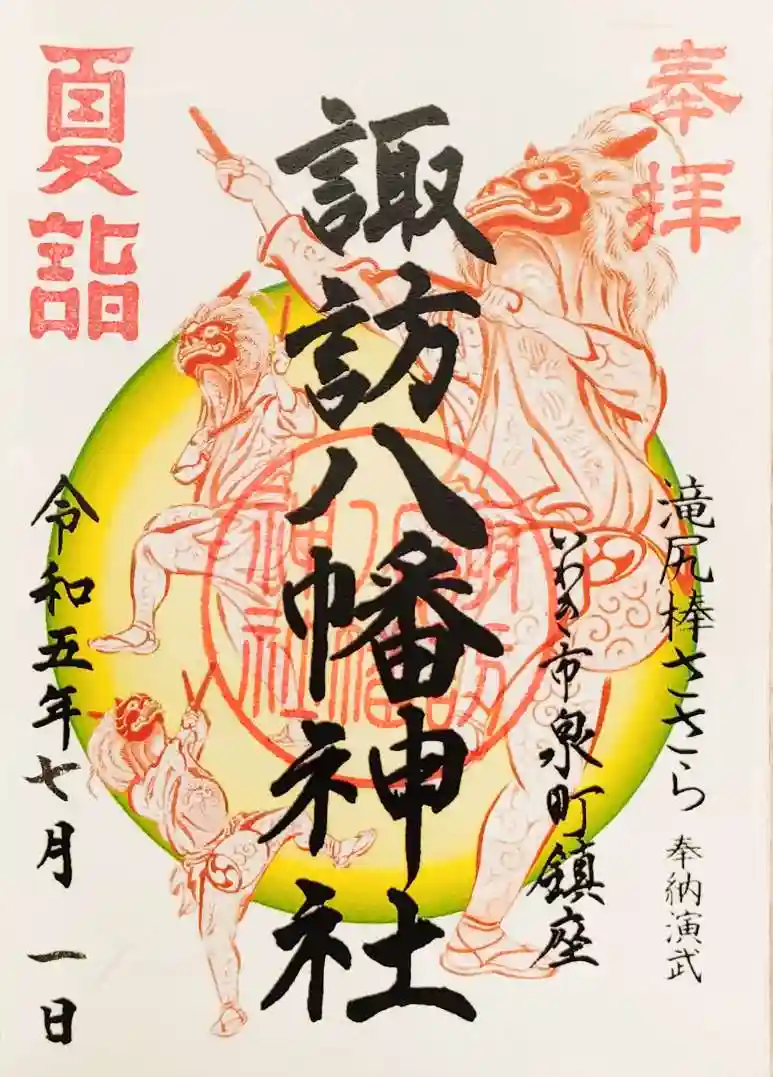 奉拝
滝尻棒ささら 奉納演武
いわき市泉町鎮座
諏訪八幡神社
諏訪八幡神社
夏詣
令和五年七月一日